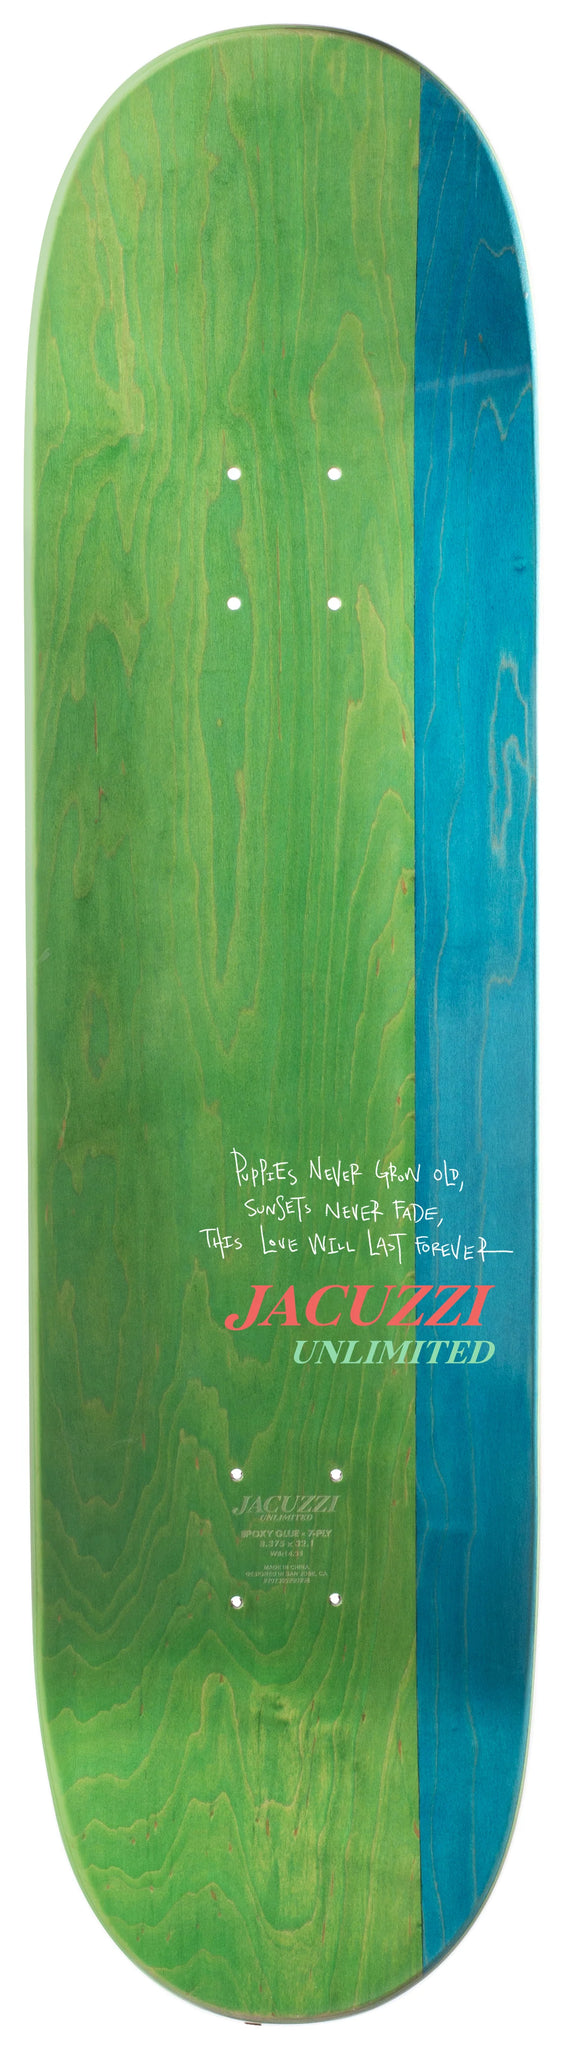 PUPPIES NEVER GROW OLD,
SUNSETS NEVER FADE,
THIS LOVE WILL LAST FOREVER
JACUZZI
UNLIMITED
JACUZZI
UNLIMITED
EPOXY GLUE • 7-PLY
8.375 x 32.1
MADE IN CHINA
DESIGNED IN SAN JOSE, CA